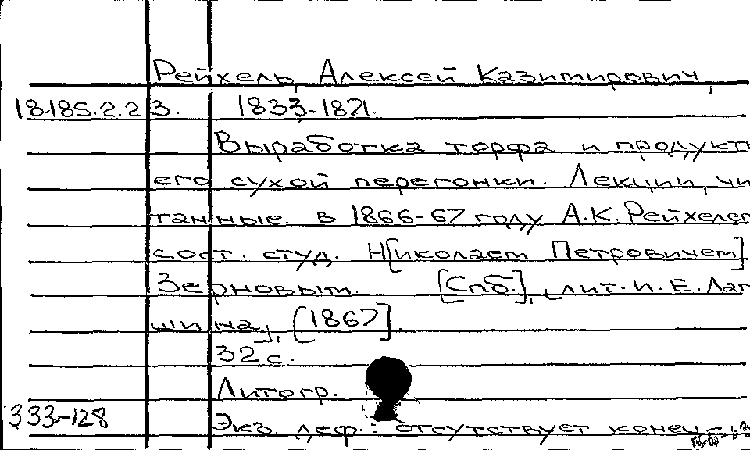 Рейхель, Алексей Казимирович,
18.185.2.23. 1833-1871.
Выработка торфа и продукты
его сухой перегонки. Лекции, чи-
танные в 1866-67 году А.К. Рейхелем
сост. студ. Н[иколаем Петровичем]
Зерновым. [Спб.], лит. И.Е. Лап-
шина, [1867].
32 с.
Литогр.
333-128 Экз. деф.: отсутствует конец